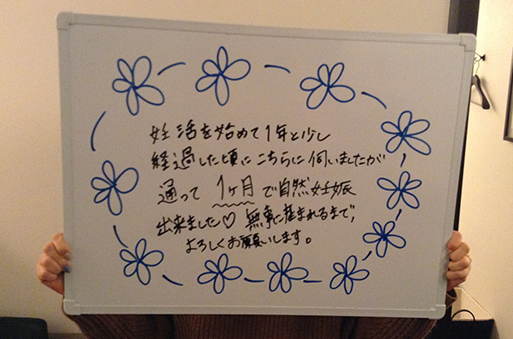 妊活を始めて1年と少し
経過した頃にこちらに伺いましたが
通って1ヶ月で自然妊娠
出来ました♡無事に産まれるまで、
よろしくお願いします。